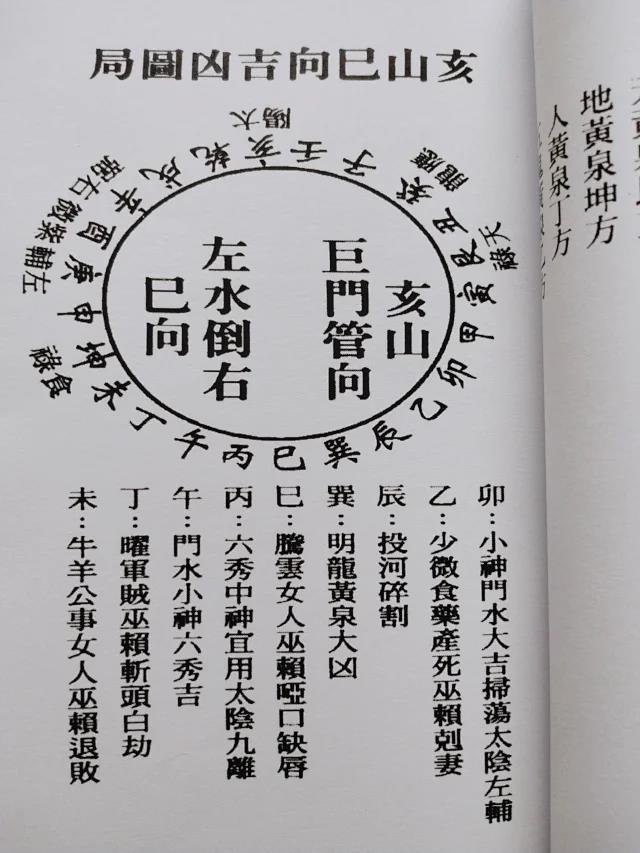 亥山巳向吉凶圖局
太陽
應龍
天祿
食祿
左輔
紫微
右弼
亥壬子癸丑艮寅甲卯乙辰巽巳丙午丁未坤申庚酉辛戌乾
亥山
巨門管向
左水倒右
巳向
卯：小神門水大吉掃蕩太陰左輔
乙：少微食藥產死巫賴剋妻
辰：投河碎割
巽：明龍黃泉大凶
巳：騰雲女人巫賴啞口缺唇
丙：六秀中神宜用太陰九離
午：門水小神六秀吉
丁：曜軍賊巫賴斬頭白劫
未：牛羊公事女人巫賴退敗
地黃泉坤方
人黃泉丁方